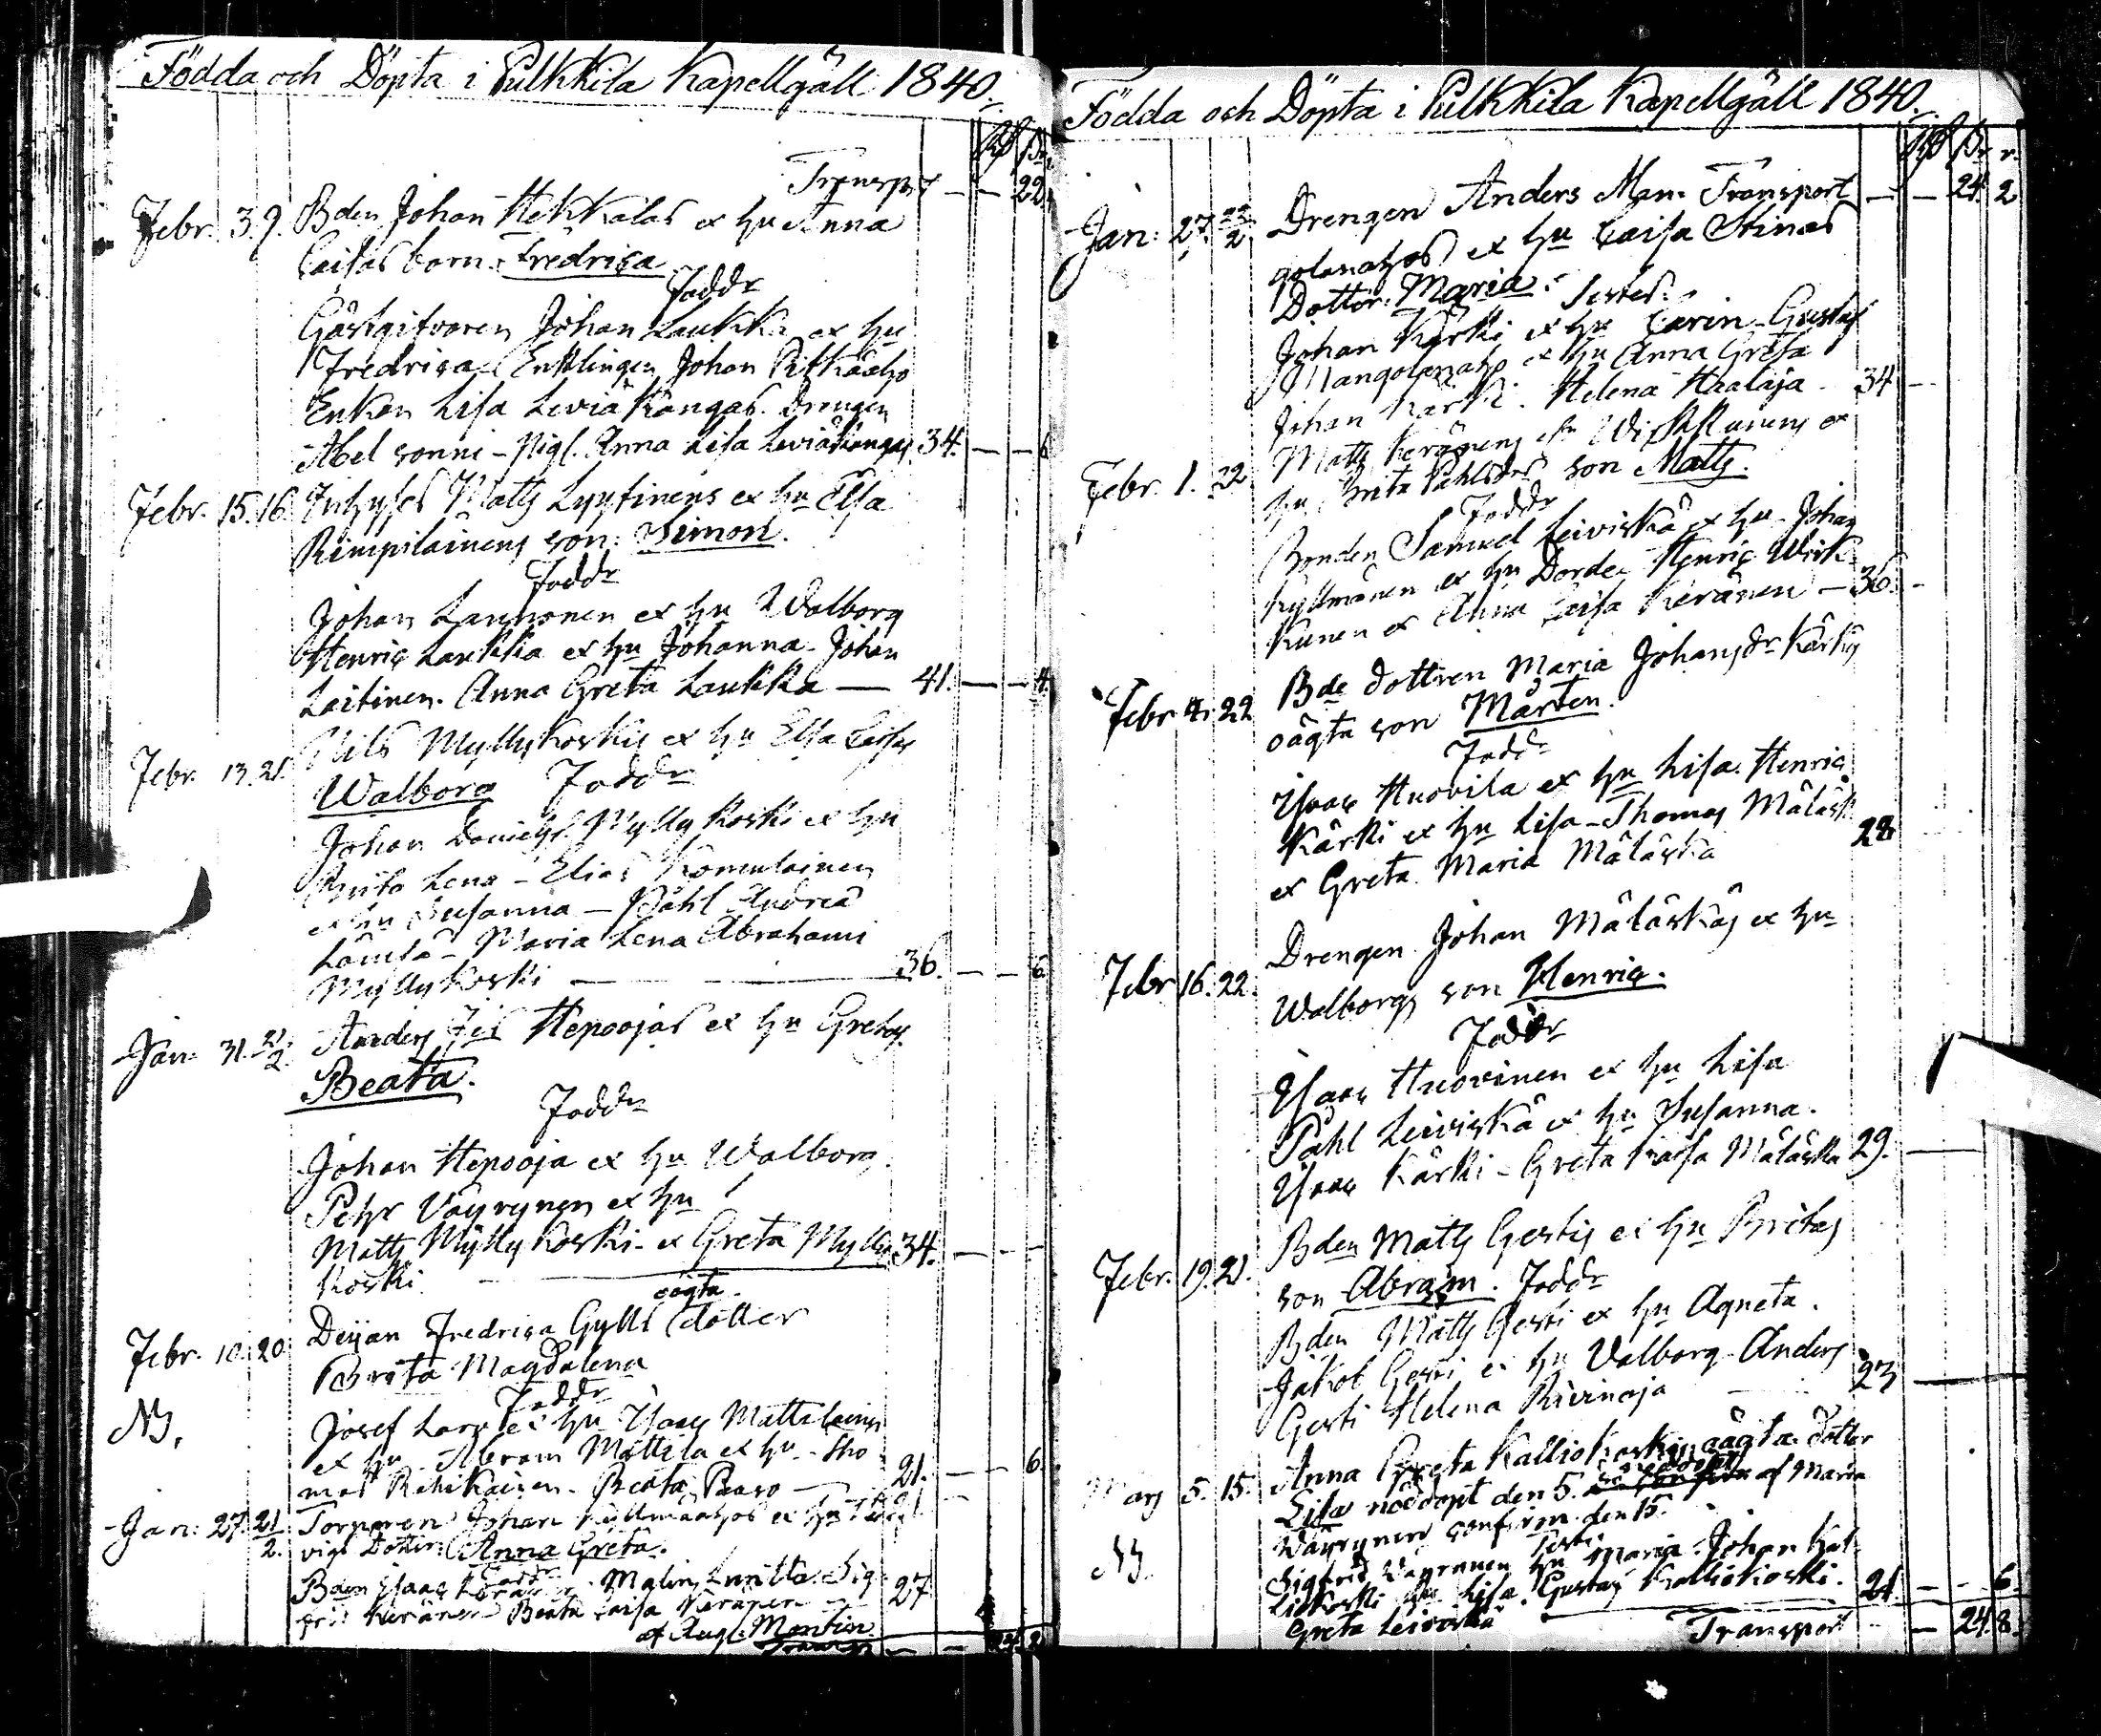 Födda och Döpta i Pulkkila Kapellgäll 1840.
Transpt — — 22.
Febr. 3. 9. Bden Johan Hekkalas ex hu Anna
Caisas barn. Fredrica
Faddr
Gästgifvaren Johan Laukka ex hu
Fredrica – Enklingen Johan Pitkäaho
Enkan Lisa Leviäkangas. Drengen
Abel – Pigl. Anna Lisa Leviäkangas 34. — — 6
Febr. 15. 16. Inhyses Matts Lyytinens ex hu Elsa
Rimpiläinens son: Simon.
Faddr
Johan Lannonen ex hu Walborg
Henric Laukka ex hu Johanna – Johan
Laitinen. Anna Greta Laukka — 41. — — 4.
Febr. 13. 21. Nils Myllykoskis ex hu Elsa Caisas
Walborg Faddr
Johan Daniels. Myllykoski ex hu
Brita Lena – Elias Komulainen
ex hu Susanna – Påhl Andreas
Maria Lena Abrahami
Myllykoski — 36. — — 6.
Jan: 31. 21/2. Anders Hepoojas ex hu Gretas
Beata.
Faddr
Johan Hepooja ex hu Walborg.
Petr Väyrynen ex hu
Matts Myllykoski – ex Greta Mylly 34. — —
koski.
oägta
Febr. 10. 20. Deijan Fredrica Gylls dotter
Brita Magdalena
Faddr
NB. Josef ex hu Isaac
ex hu – Abram Mattila ex hu – Tho
mas Rehikainen – Beata Paaso — 21. — — 6.
Jan: 27. 21/2. Torparen Johan Kyllmäahos ex hu
vigs Dotter: Anna Greta.
Faddr
Bden Isaac Keränen. Malin Sig
frid Keränen – Beata Caisa Keränen — 27
Transp — —
Födda och Döpta i Pulkkila Kapellgäll 1840.
Transport — — 24. 2
Jan: 27. 22/2. Drengen Anders Man
golanahos ex hu Caisa Stinas
Dotter: Maria. Testes:
Johan Kärki ex hu Carin – Gustaf
Mangolanaho ex hu Anna Greta
Johan Kärki. Helena Haalaja. 34 —
Febr. 1. 22 Matts Keränens
hu Brita Påhlsdrs son Matts.
Faddr
Bonden Samuel Leiviskä ex hu – Johan
Kyllmänen ex hu Dorde – Henric Wirk
kunen ex Anna Caisa Keränen — 36. —
Febr. 4. 22 Bde dottren Maria Johansdr Kärkis
oägta son Mårten.
Faddr
Isaac Huovila ex hu Lisa. Henric
Kärki ex hu Lisa – Thomas Mäläsk
ex Greta Maria Mäläskä 28
Febr 16. 22. Drengen Johan Mäläskäs ex hu
Walborgs son Henric.
Faddr
Isaac Huovinen ex hu Lisa
Påhl Leiviskä ex hu Susanna.
Isaac Kärki – Greta Caisa Mäläskä 29. —
Febr. 19. 21. Bden Matts Gestis ex hu Britas
son Abram. Faddr
Bden Matts Gesti ex hu Agneta.
Jakob Gesti ex hu Valborg – Anders
Gesti Helena Rivinoja — 23 —
Mars 5. 15. Anna Greta Kalliokoskis oägta dotter
Lisa nöddöpt den 5. af Maria
Wäyrynen confirm. den 15.
Testi
NB. Sigfrid Väyrynen hu Maria. Johan Kal
liokoski hu Lisa. Gustaf Kalliokoski. 21 — — 6.
Greta Leiviskä
Transport — — 24. 8.